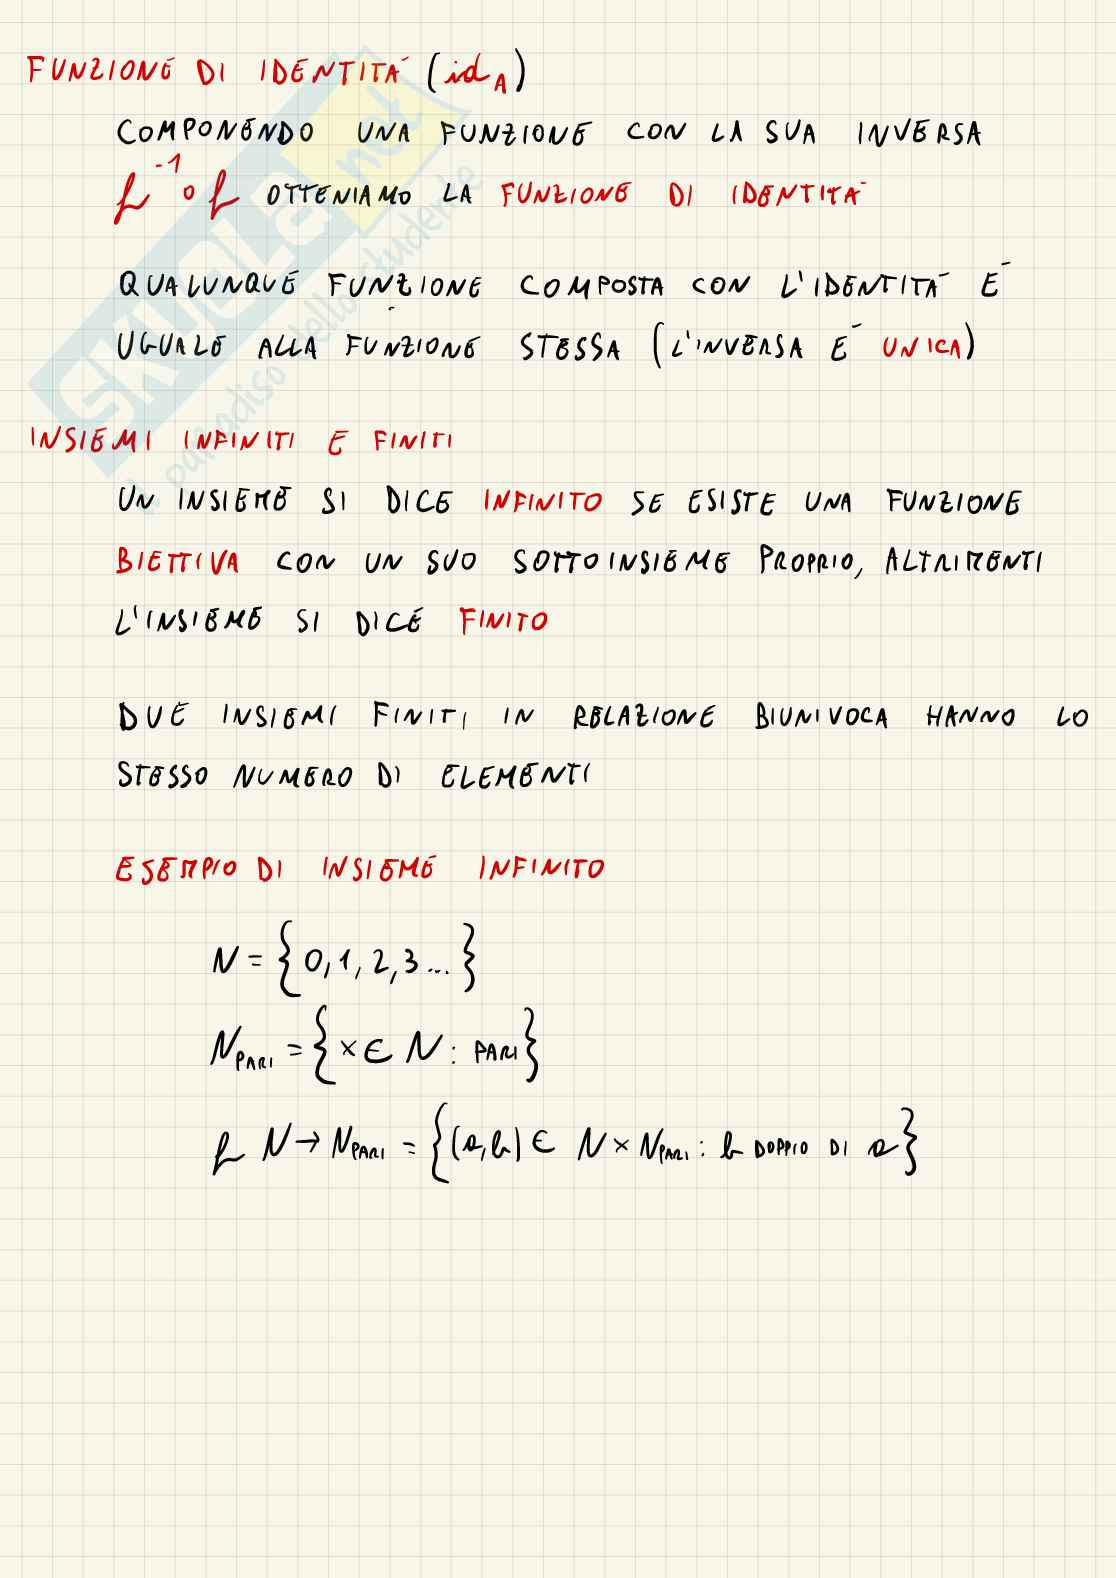 FUNZIONE DI IDENTITÀ (id_A)
COMPONENDO UNA FUNZIONE CON LA SUA INVERSA
f⁻¹∘f OTTENIAMO LA FUNZIONE DI IDENTITÀ
QUALUNQUE FUNZIONE COMPOSTA CON L'IDENTITÀ È
UGUALE ALLA FUNZIONE STESSA (L'INVERSA È UNICA)
INSIEMI INFINITI E FINITI
UN INSIEME SI DICE INFINITO SE ESISTE UNA FUNZIONE
BIETTIVA CON UN SUO SOTTOINSIEME PROPRIO, ALTRIMENTI
L'INSIEME SI DICE FINITO
DUE INSIEMI FINITI IN RELAZIONE BIUNIVOCA HANNO LO
STESSO NUMERO DI ELEMENTI
ESEMPIO DI INSIEME INFINITO
N = {0, 1, 2, 3 ...}
N_PARI = {x ∈ N : PARI}
f N → N_PARI = {(a,b) ∈ N × N_PARI : b DOPPIO DI a}
SKUOLA.net
il paradiso dello studente